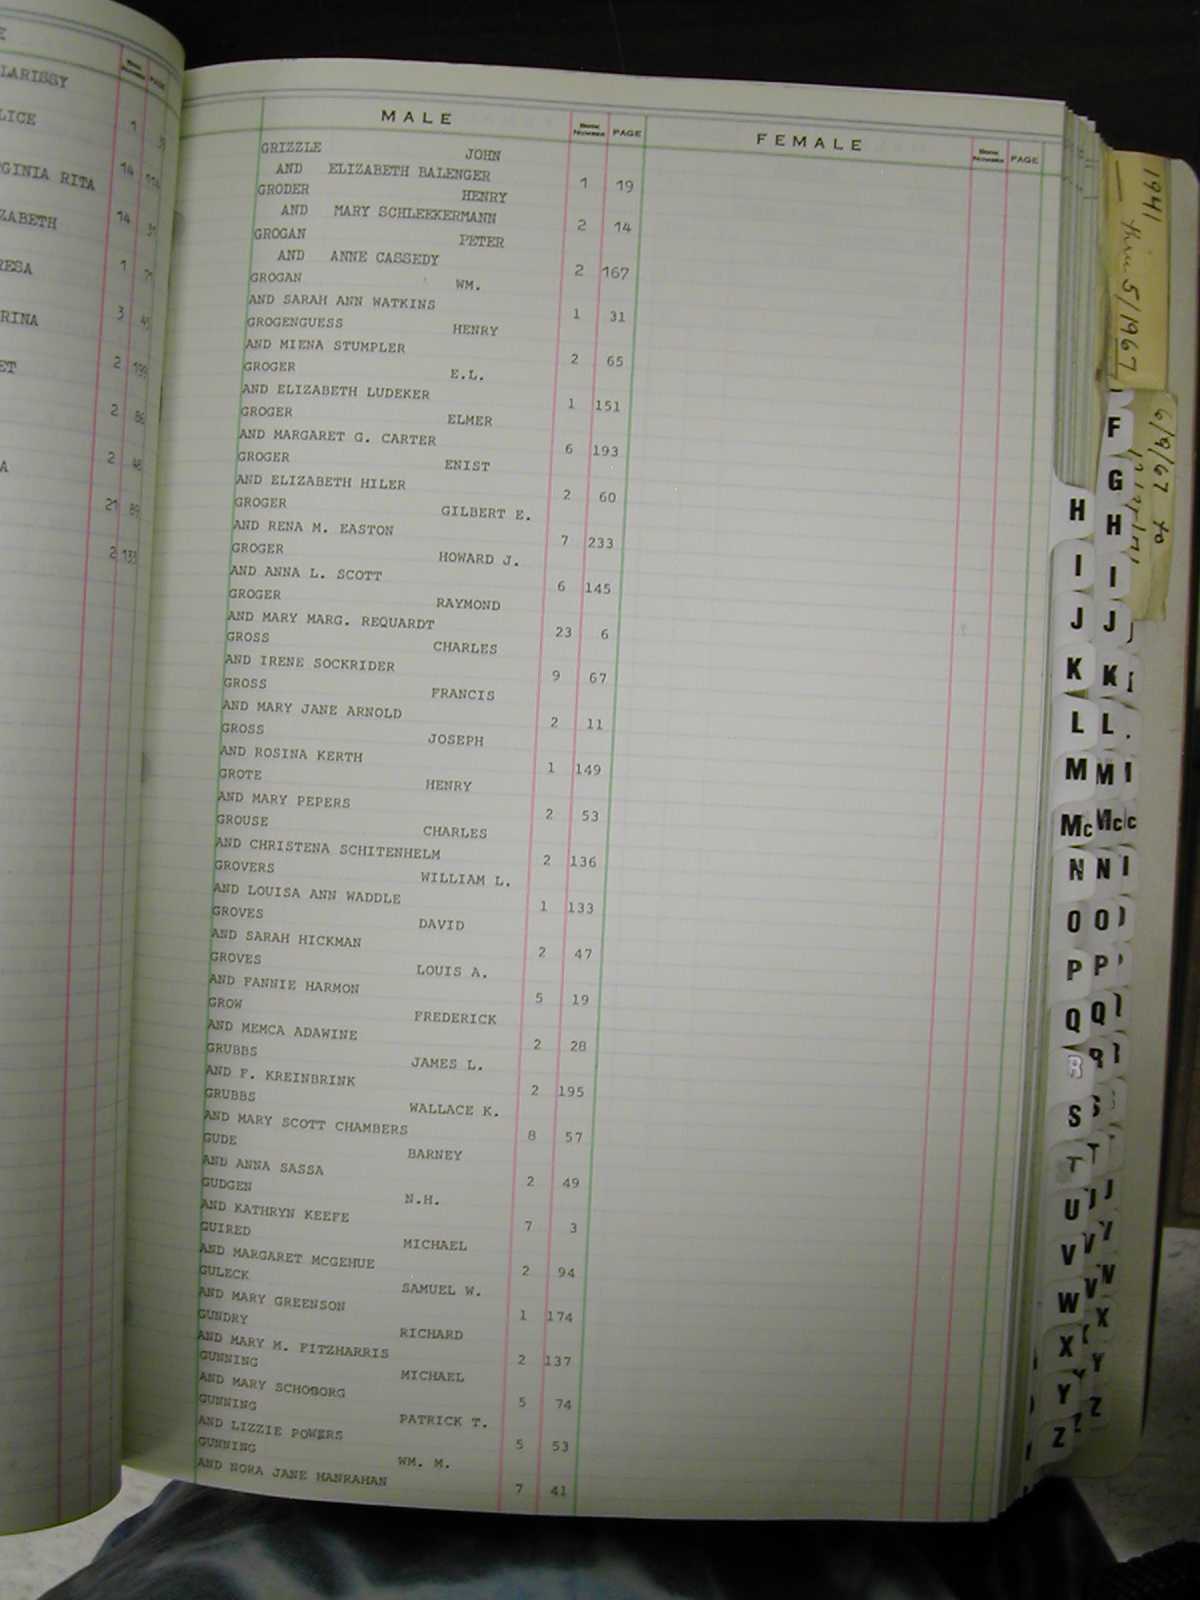 LARISSY
LICE 1
GINIA RITA 14 114
ZABETH 14
RESA 1
RINA 3 45
ET 2 199
2 86
A 2 48
21 89
2 133
MALE BOOK NUMBER PAGE FEMALE BOOK NUMBER PAGE
GRIZZLE JOHN
AND ELIZABETH BALENGER 1 19
GRODER HENRY
AND MARY SCHLEEKERMANN 2 14
GROGAN PETER
AND ANNE CASSEDY 2 167
GROGAN WM.
AND SARAH ANN WATKINS 1 31
GROGENGUESS HENRY
AND MIENA STUMPLER 2 65
GROGER E.L.
AND ELIZABETH LUDEKER 1 151
GROGER ELMER
AND MARGARET G. CARTER 6 193
GROGER ENIST
AND ELIZABETH HILER 2 60
GROGER GILBERT E.
AND RENA M. EASTON 7 233
GROGER HOWARD J.
AND ANNA L. SCOTT 6 145
GROGER RAYMOND
AND MARY MARG. REQUARDT 23 6
GROSS CHARLES
AND IRENE SOCKRIDER 9 67
GROSS FRANCIS
AND MARY JANE ARNOLD 2 11
GROSS JOSEPH
AND ROSINA KERTH 1 149
GROTE HENRY
AND MARY PEPERS 2 53
GROUSE CHARLES
AND CHRISTENA SCHITENHELM 2 136
GROVERS WILLIAM L.
AND LOUISA ANN WADDLE 1 133
GROVES DAVID
AND SARAH HICKMAN 2 47
GROVES LOUIS A.
AND FANNIE HARMON 5 19
GROW FREDERICK
AND MEMCA ADAWINE 2 28
GRUBBS JAMES L.
AND F. KREINBRINK 2 195
GRUBBS WALLACE K.
AND MARY SCOTT CHAMBERS 8 57
GUDE BARNEY
AND ANNA SASSA 2 49
GUDGEN N.H.
AND KATHRYN KEEFE 7 3
GUIRED MICHAEL
AND MARGARET MCGEHUE 2 94
GULECK SAMUEL W.
AND MARY GREENSON 1 174
GUNDRY RICHARD
AND MARY M. FITZHARRIS 2 137
GUNNING MICHAEL
AND MARY SCHOBORG 5 74
GUNNING PATRICK T.
AND LIZZIE POWERS 5 53
GUNNING WM. M.
AND NORA JANE HANRAHAN 7 41
1941
thru 5/1967
6/9/67 to
F
G
H H
I I
J J
K K
L L
M M
Mc Mc
N N
O O
P P
Q Q
R R
S S
T T
U
V V
W
X X
Y Y
Z Z